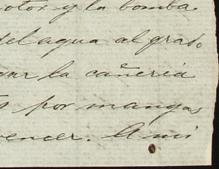 y la bomba
del agua al grado
por la cañeria
por mangas
vencer. A mi